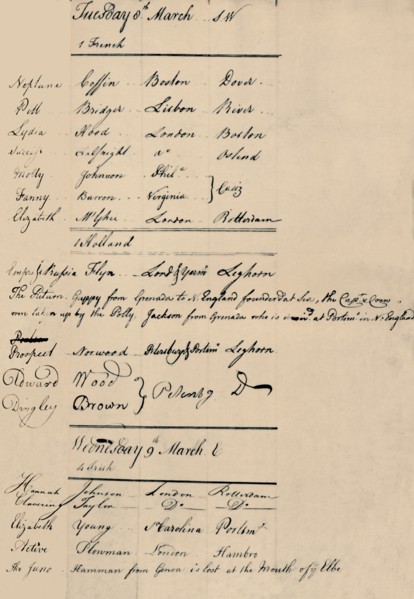 Tuesday 8th March S W
1 French
Neptune Coffin Boston Dover
Pitt Bridger Lisbon River
Lydia Hood London Boston
Do Ostend
Molly Johnson Phila
Fanny Barron Virginia } Cadiz
Elizabeth McGhee London Rotterdam
Holland
Russia Flyn Lond & Yarmo Leghorn
The Guppy from Grenada to N. England founderd at Sea, the Captn & Crew
were taken up by the Polly, Jackson from Grenada who is at Portsmo in N. England
Prospect Norwood Petersburg & Portsmo Leghorn
Edward Wood
Dingley Brown } Petersbg Do
Wednesday 9th March E
4 Irish
Hannah Johnson London Rotterdam
Taylor Do Do
Elizabeth Young So Carolina Portsmo
Active Plowman London Hambro
The Juno Hamman from Genoa is lost at the Mouth of ye Elbe